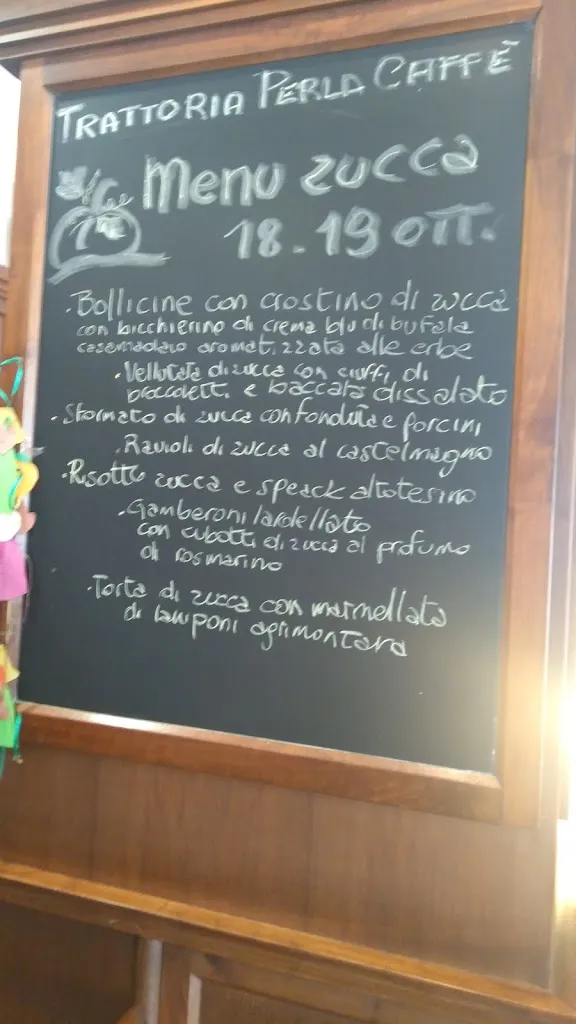 TRATTORIA PERLA CAFFÈ
Menu zucca
18-19 OTT.
• Bollicine con crostino di zucca
con bicchierino di crema blu di bufala
aromatizzata alle erbe
• Vellutata di zucca con ciuffi di
broccoletti e baccalà dissalato
• Sformato di zucca con fonduta e porcini
• Ravioli di zucca al castelmagno
• Risotto zucca e speack altotesino
• Gamberoni lardellato
con cubotti di zucca al profumo
di rosmarino
• Torta di zucca con marmellata
di lamponi agrimontana